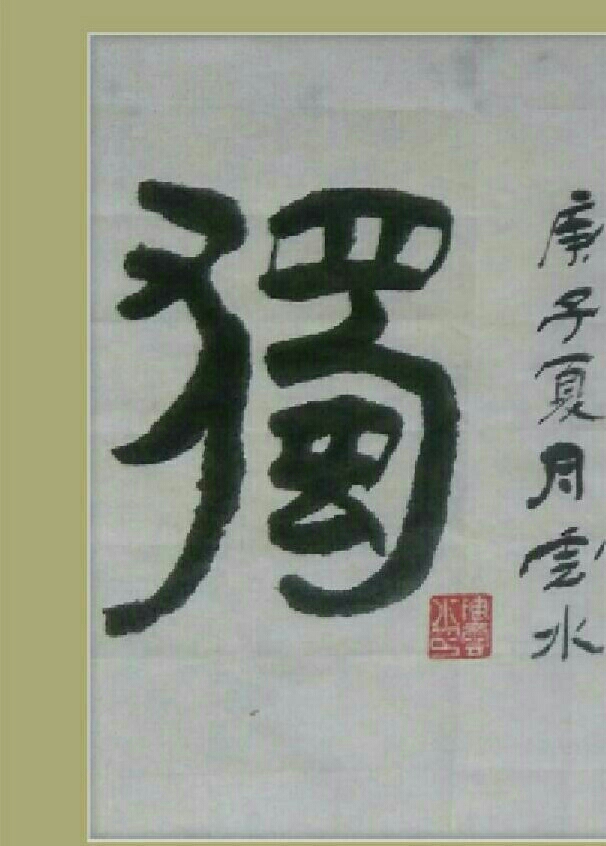 獨
庚子夏月雲水